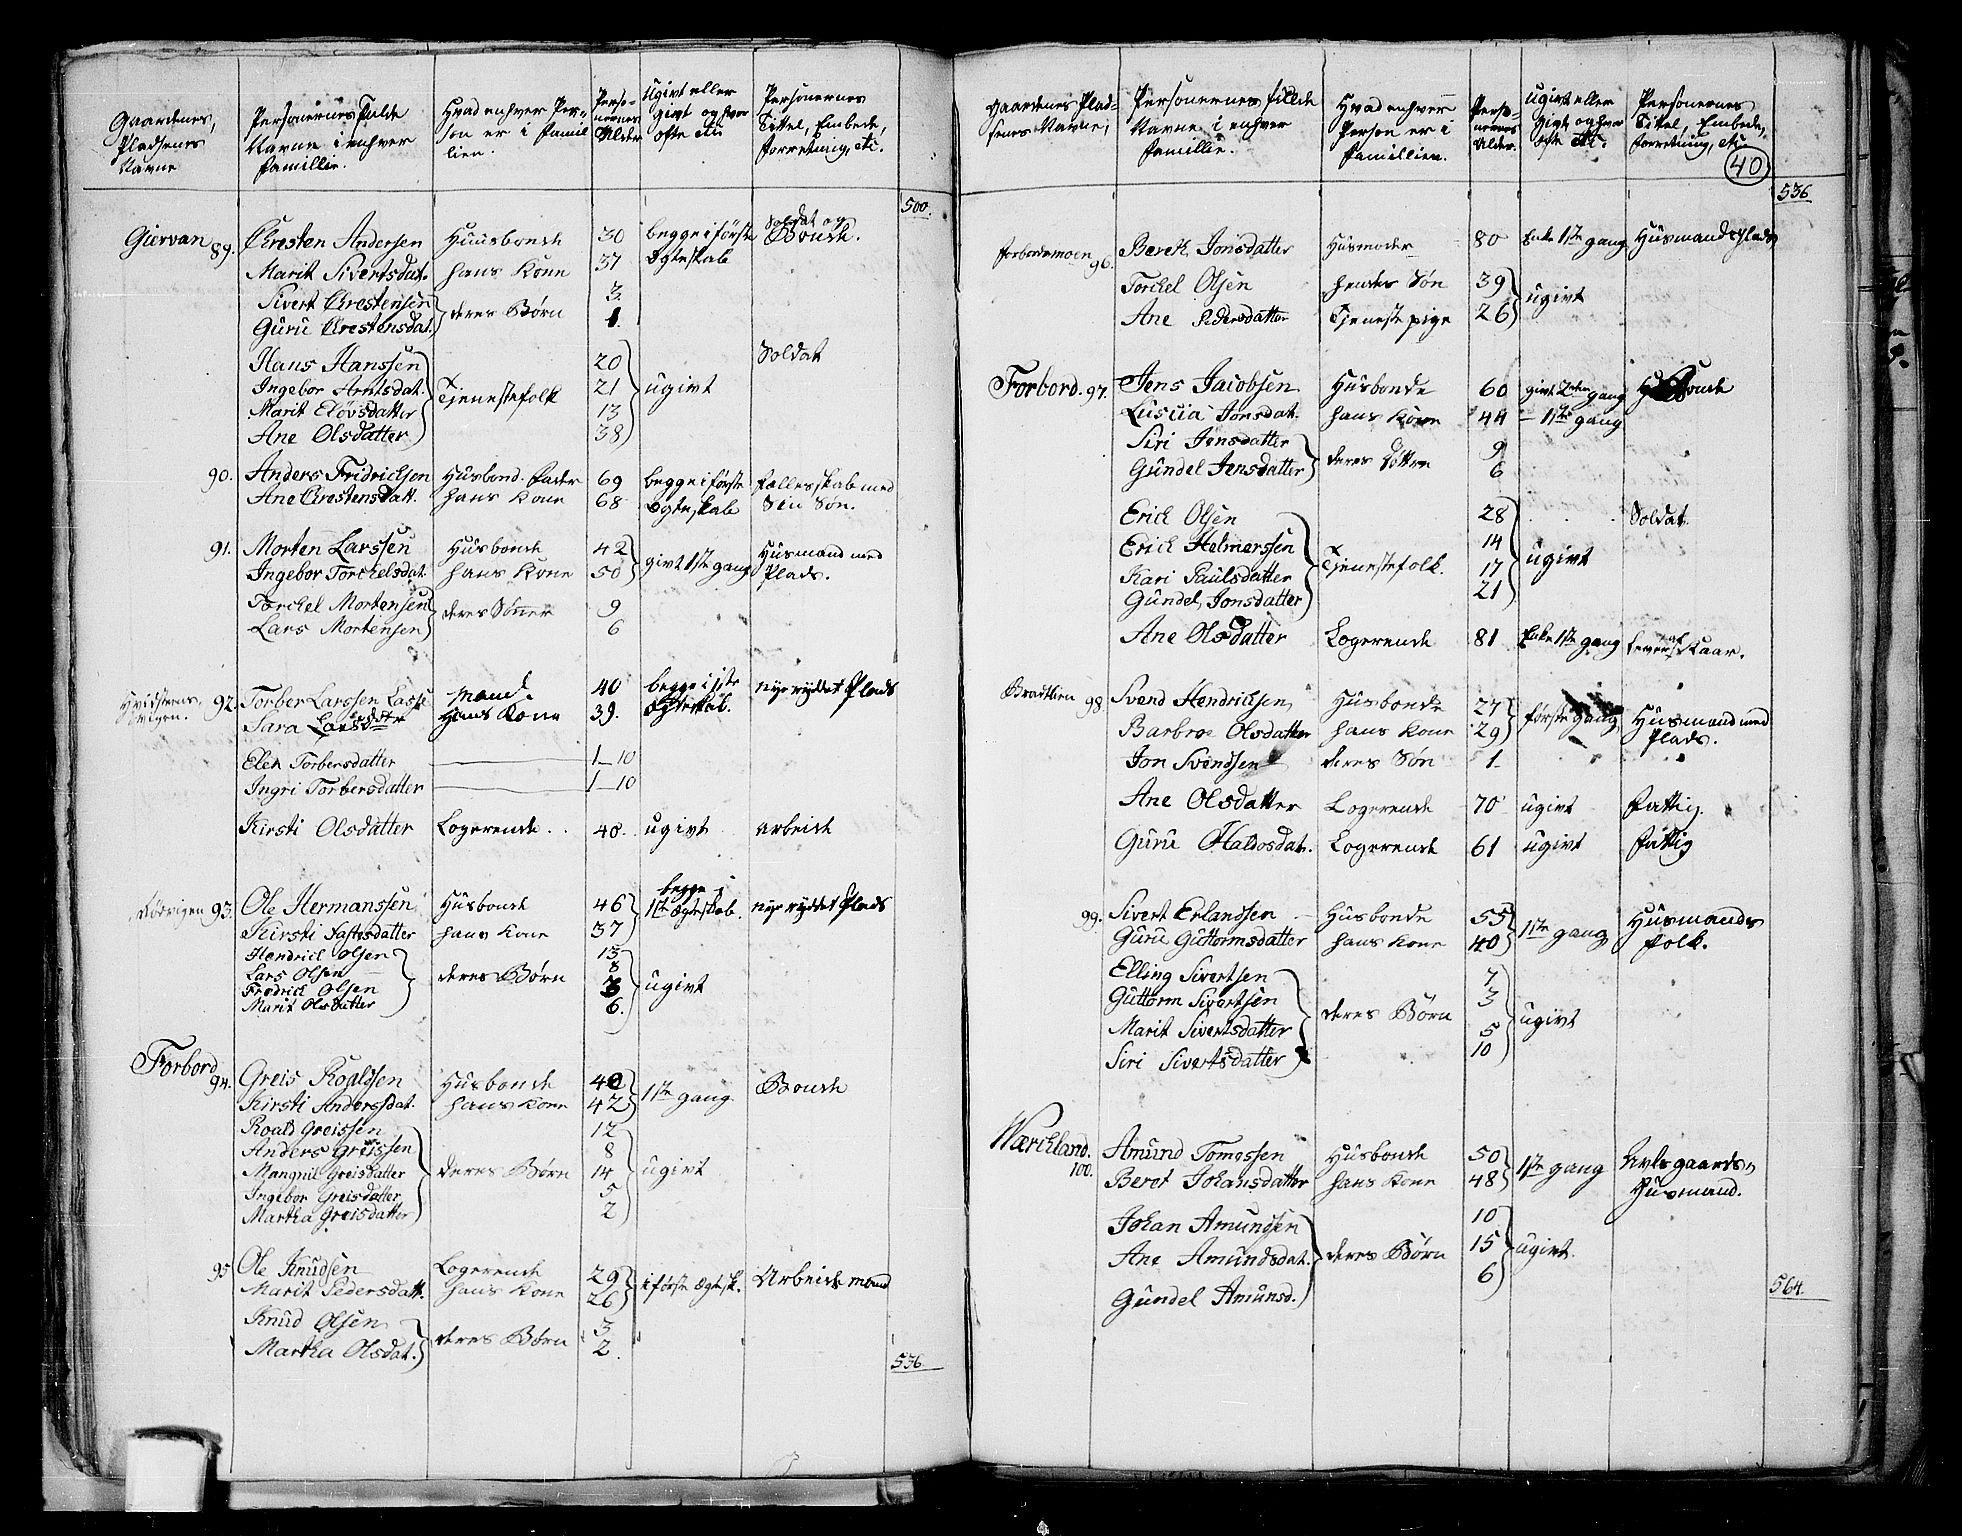 Gaardenes, Pladsenes Navne
Personernes Fulde Navne i enhver familie.
Hvad enhver Person er i familien.
Personernes Alder
Ugivt eller givt og hvor ofte etc
Personernes Tittel, Embede, forretning, etc.
500.
Giervan 89. Christen Andersen Huusbonde 30 begge i første Soldat og Bonde.
Marit Sivertsdat. hans Kone 37 Egteskab
Sivert Christensen 3.
Guru Christensdat. deres Børn 1.
Hans Hanssen 20 Soldat
Ingebor Arntsdat. Tjenestefolk 21 ugivt
Marit Eløvsdatter 13
Ane Olsdatter 38
90. Anders Fridrichsen Husbond. Fader 69 begge i første fællesskab med
Ane Christensdatt. hans Kone 68 Egteskab Sin Søn.
91. Morten Larssen Husbonde 42 givt 1ste gang Husmand med
Ingebor Torchelsdat. hans Kone 50 Plads.
Torchel Mortensen deres Sønner 9
Lars Mortensen 6
92. Torber Larssen Mand. 40 begge i 1ste nye ryddet Plads
Sara hans Kone 39. Egteskab.
Elen Torbersdatter 1-10
Ingri Torbersdatter 1-10
Kirsti Olsdatter Logerende. 40. ugivt arbeide
93. Ole Hermanssen Husbonde 46 begge i 1ste Egteskab. nye ryddet Plads
Kirsti hans Kone 37
Hendrich Olsen 13
Lars Olsen deres Børn 8
Fredrich Olsen 3 ugivt
Marit Olsdatter 6.
Forbord
94. Greis Roaldsen Husbonde 40 1ste gang Bonde
Kirsti Andersdat. hans Kone 42
Roald Greissen 12
Anders Greissen 8
Mangnil Greisdatter deres Børn 14 ugivt
Ingebor Greisdatter 5
Martha Greisdatter 2
95 Ole Knudsen Logerende 29 i første Egtesk. Arbeids mand
Marit Pedersdatt. hans Kone 26
Knud Olsen deres Børn 3
Martha Olsdat. 2.
536
Gaardenes Pladsenes Navne,
Personernes fulde Navne i enhver familie.
Hvad enhver Person er i familien.
Personernes Alder.
Ugivt eller givt og hvor ofte etc.
Personernes Tittel, Embede, forretning, etc.
40
536
Forbordsmoen 96. Bereth Jonsdatter Husmoder 80 Enke 1ste gang Husmandsplads
Torchel Olsen hendes Søn 39 ugivt
Ane Pedersdatter Tjeneste pige 26
Forbord. 97. Jens Jacobsen Husbonde 60 givt 2den gang
Luscia Jonsdat. hans Kone 44 - 1ste gang
Siri Jensdatter deres Døttre 9
Gundel Jensdatter 6
Erich Olsen 28 Soldat.
Erich Helmerssen 14
Kari Paulsdatter Tjenestefolk. 17 ugivt
Gundel Jonsdatter 21
Ane Olsdatter Logerende 81 Enke 1ste gang Lever af Kaar.
98. Svend Hendrichsen Husbonde 27 første gang Husmand med
Barbroe Olsdatter hans Kone 29 Plads.
Jon Svendsen deres Søn 1
Ane Olsdatter Logerende 70 ugivt fattig.
Guru Haldosdat. Logerende 61 ugivt fattig
99. Sivert Erlandsen Husbonde 55 1ste gang Husmands
Guru Guttormsdatter hans Kone 40 folk.
Elling Sivertsen 7
Guttorm Sivertsen deres Børn 3 ugivt
Marit Sivertsdatter 5
Siri Sivertsdatter 10
Værchland.
100. Amund Tomessen Husbonde 50 1ste gang Avlsgaards
Beret Johansdatter hans Kone 48 Husmand.
Johan Amundsen 10
Ane Amundsdat. deres Børn 15 ugivt.
Gundel Amunsd. 6
564.